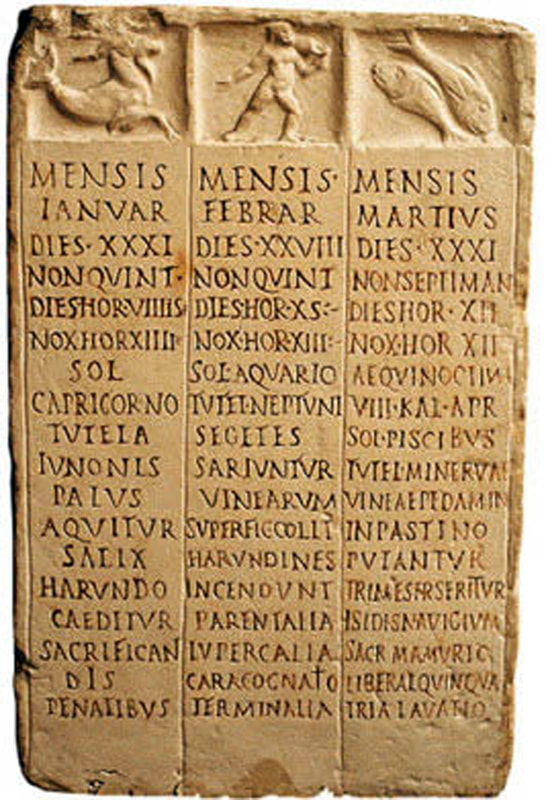 MENSIS
IANVAR
DIES·XXXI
NONQVINT·
DIESHOR·VIIIIS
NOX·HORXIIII
SOL
CAPRICORNO
TVTELA
IVNONIS
PALVS
AQVITVR
SALIX
HARVNDO
CAEDITVR
SACRIFICAN
DIS
PENATIBVS
MENSIS·
FEBRAR
DIES·XXVIII
NONQVINT
DIES·HOR·XS:-
NOX·HOR·XIII:-
SOL·AQVARIO
TVTEL·NEPTVNI
SEGETES
SARIVNTVR
VINEARVM
SVPERFIC·COLLI
HARVNDINES
INCENDVNT
PARENTALIA
LVPERCALIA
CARACOGNATO
TERMINALIA
MENSIS
MARTIVS
DIES·XXXI
NONSEPTIMAN
DIESHOR·XII
NOX·HOR XII
AEQVINOCTIVM
VIII·KAL·APR
SOL·PISCIBVS
TVTEL·MINERVAE
VINEAEPEDAMIN
INPASTINO
PVTANTVR
TRIMESTRSERITVR
ISIDISNAVIGIVM
SACR MAMVRIO
LIBERALQVINQVA
TRIALAVATIO